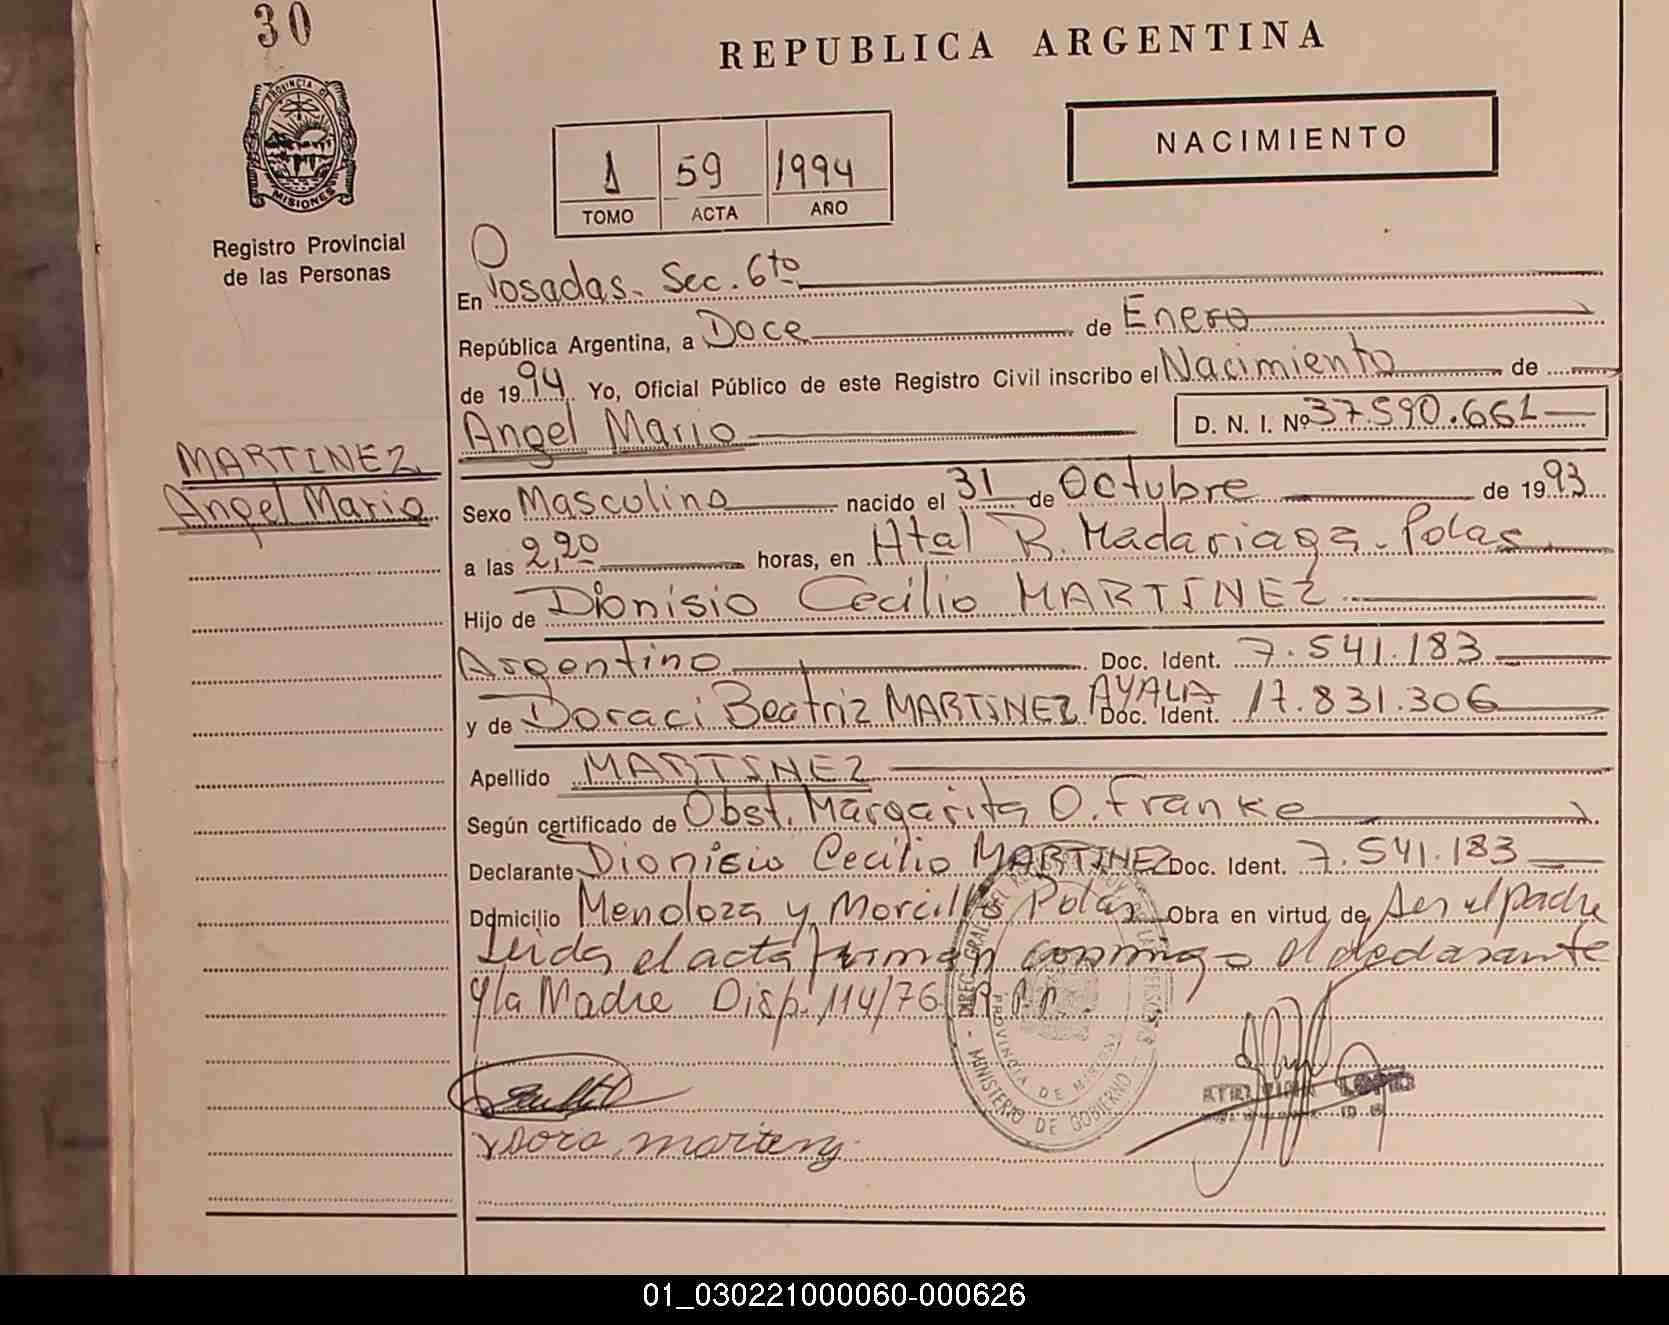 30
REPUBLICA ARGENTINA
PROVINCIA DE
MISIONES
NACIMIENTO
1 59 1994
TOMO ACTA AÑO
Registro Provincial
de las Personas
En Posadas. Sec. 6to
República Argentina, a Doce de Enero
de 1994 Yo, Oficial Público de este Registro Civil inscribo el Nacimiento de
Angel Mario D. N. I. Nº 37.590.661
MARTINEZ
Angel Mario
Sexo Masculino nacido el 31 de Octubre de 1993
a las 2,20 horas, en Htal R. Madariaga - Pdas
Hijo de Dionisio Cecilio MARTINEZ
Argentino Doc. Ident. 7.541.183
y de Doraci Beatriz MARTINEZ AYALA Doc. Ident. 17.831.306
Apellido MARTINEZ
Según certificado de Obst. Margarita O. Franke
Declarante Dionisio Cecilio MARTINEZ Doc. Ident. 7.541.183
Domicilio Mendoza y Morcillo Pdas Obra en virtud de ser el padre
Leida el acta firman conmigo el declarante
y la Madre Disp. 114/76 R.P.P.
PROVINCIA DE
MINISTERIO DE GOBIERNO
01_030221000060-000626